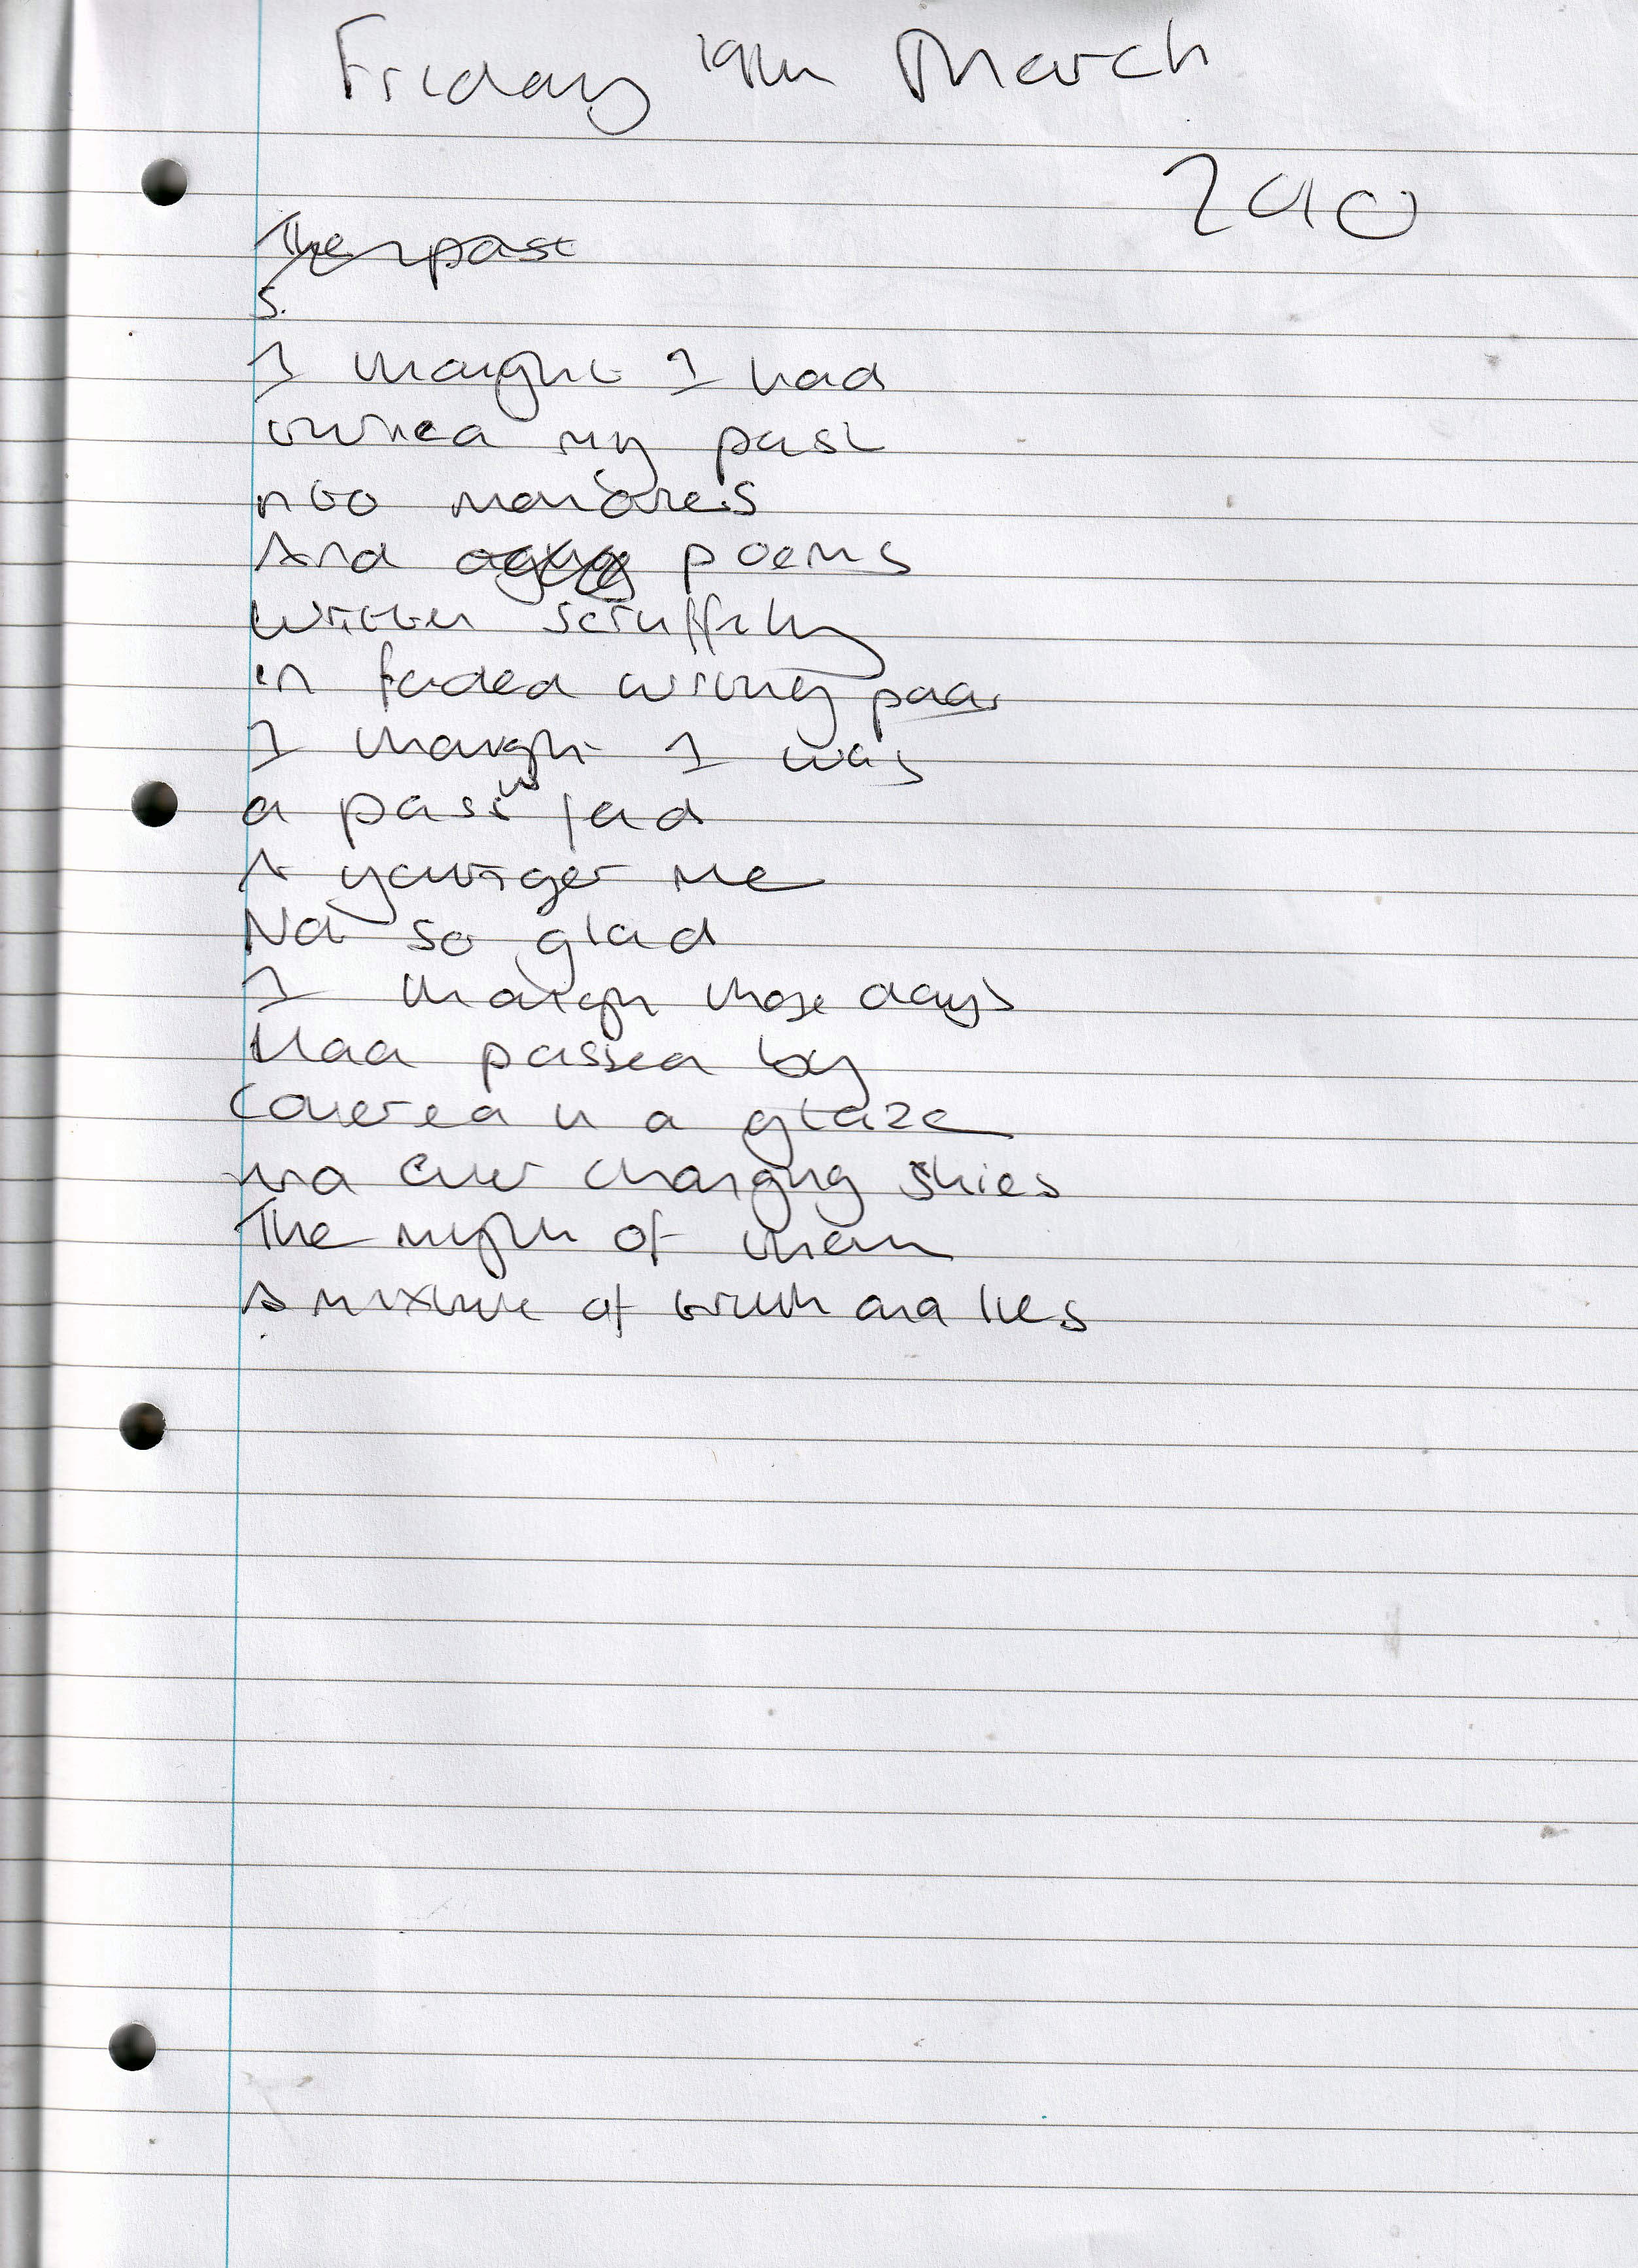 Friday 19th March
2010
The past
5.
I thought I had
turned my past
into memories
And poems
written scruffily
in faded writing
I thought I was
a past fad
A younger me
Not so glad
I though those days
Had passed by
Covered in a glaze
and ever changing skies
The myth of them
A mixture of truth and lies